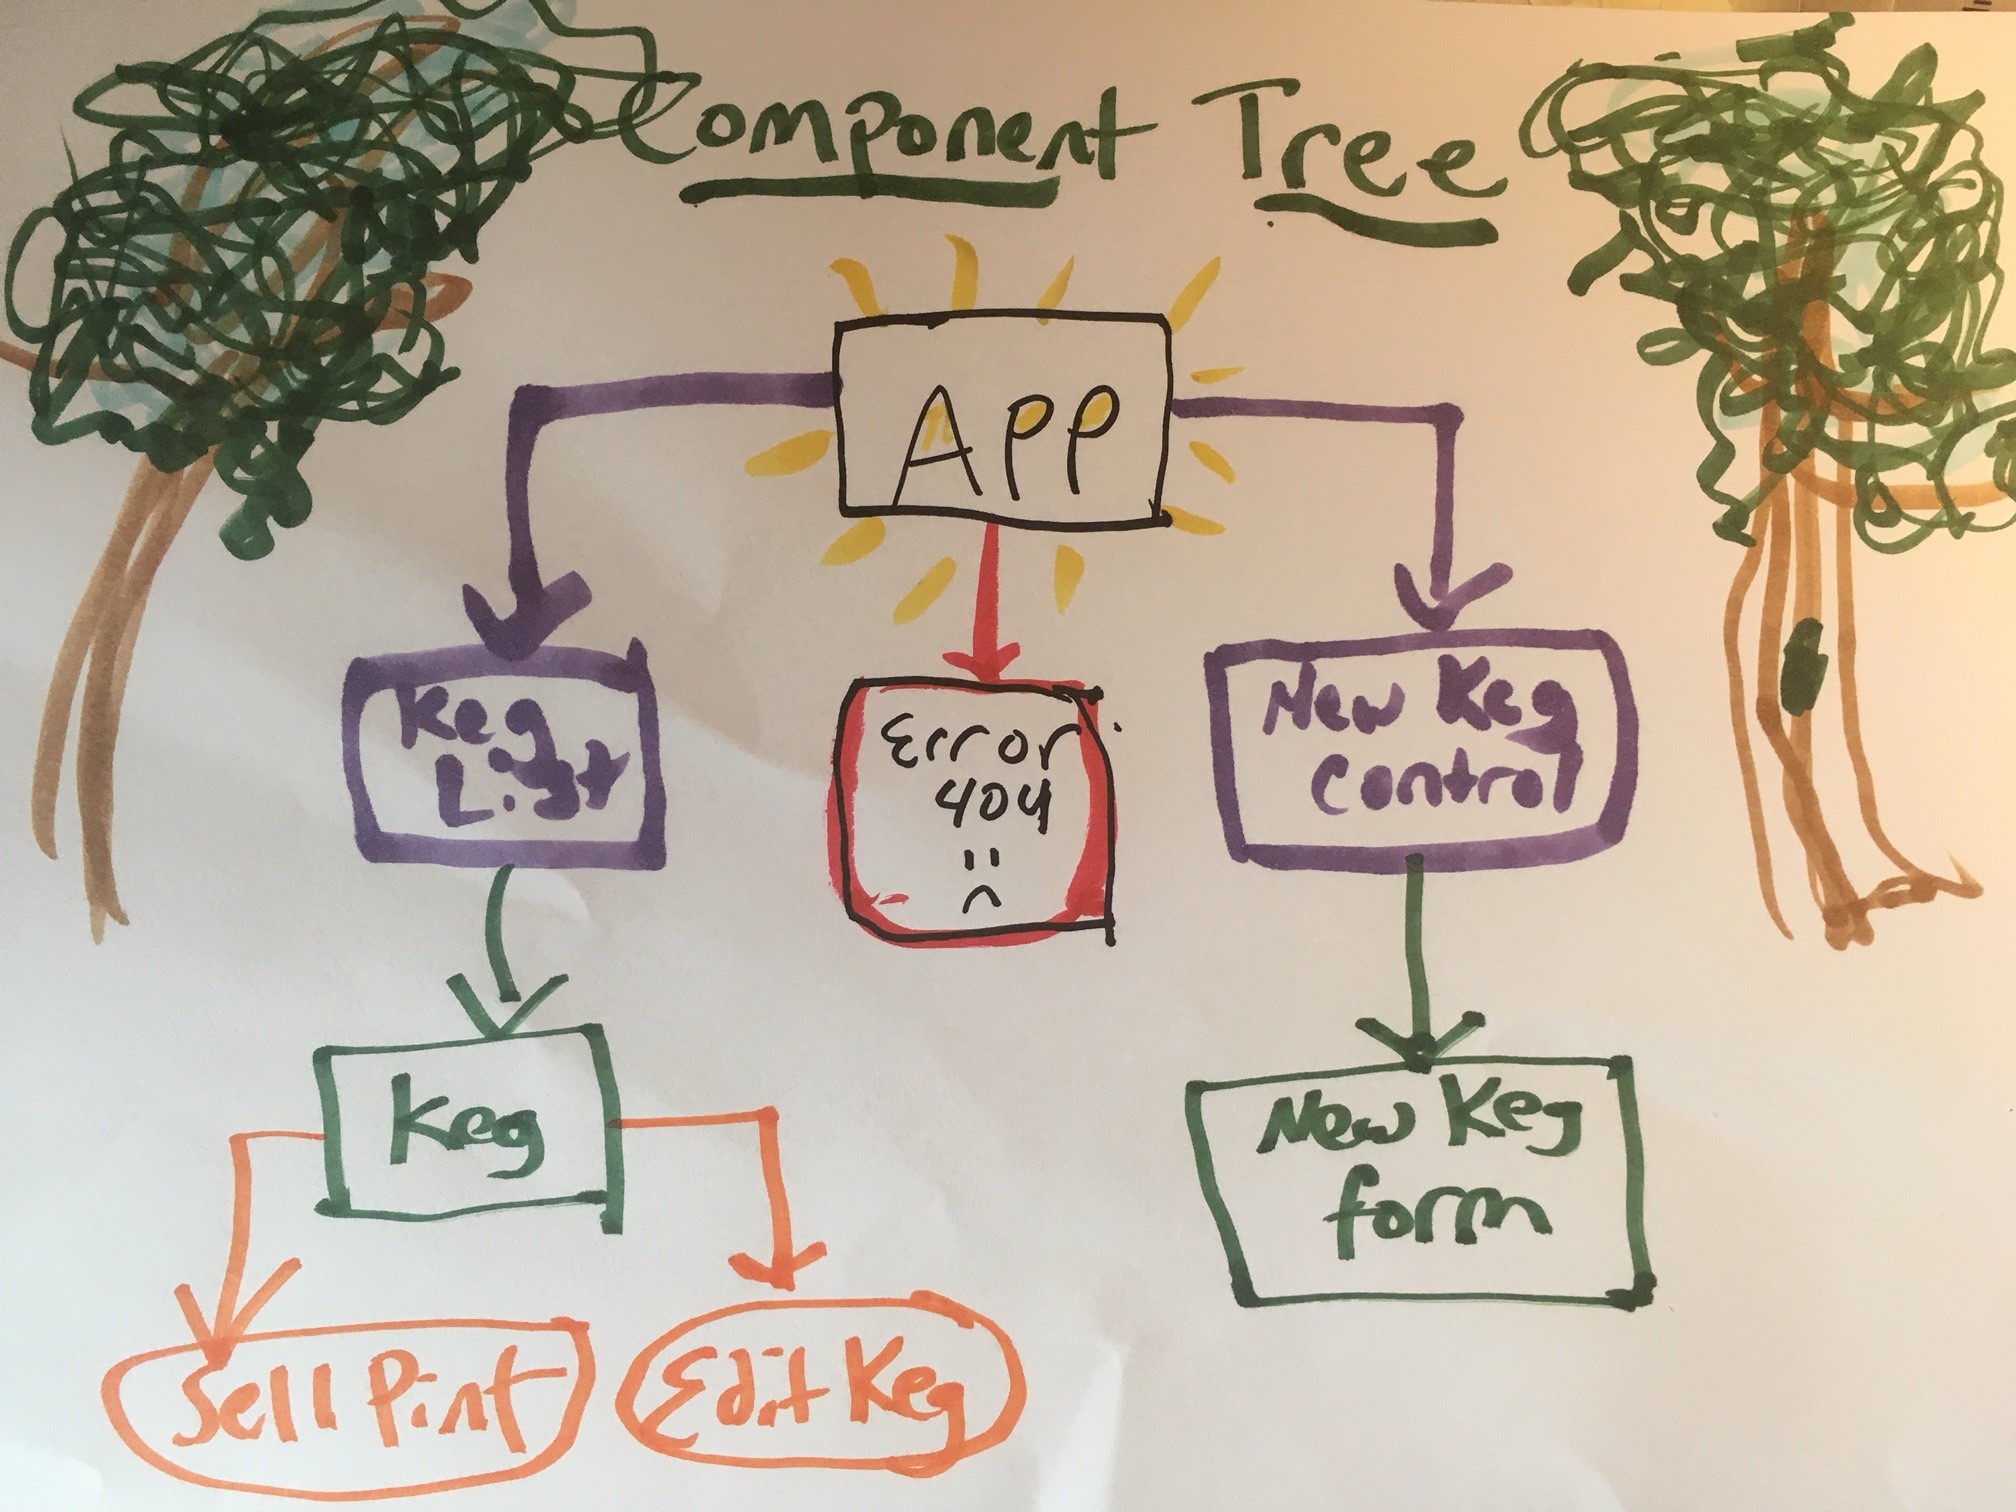 Component Tree
APP
Keg
List
Error
404
New Keg
Control
Keg
New Keg
form
Sell Pint
Edit Keg